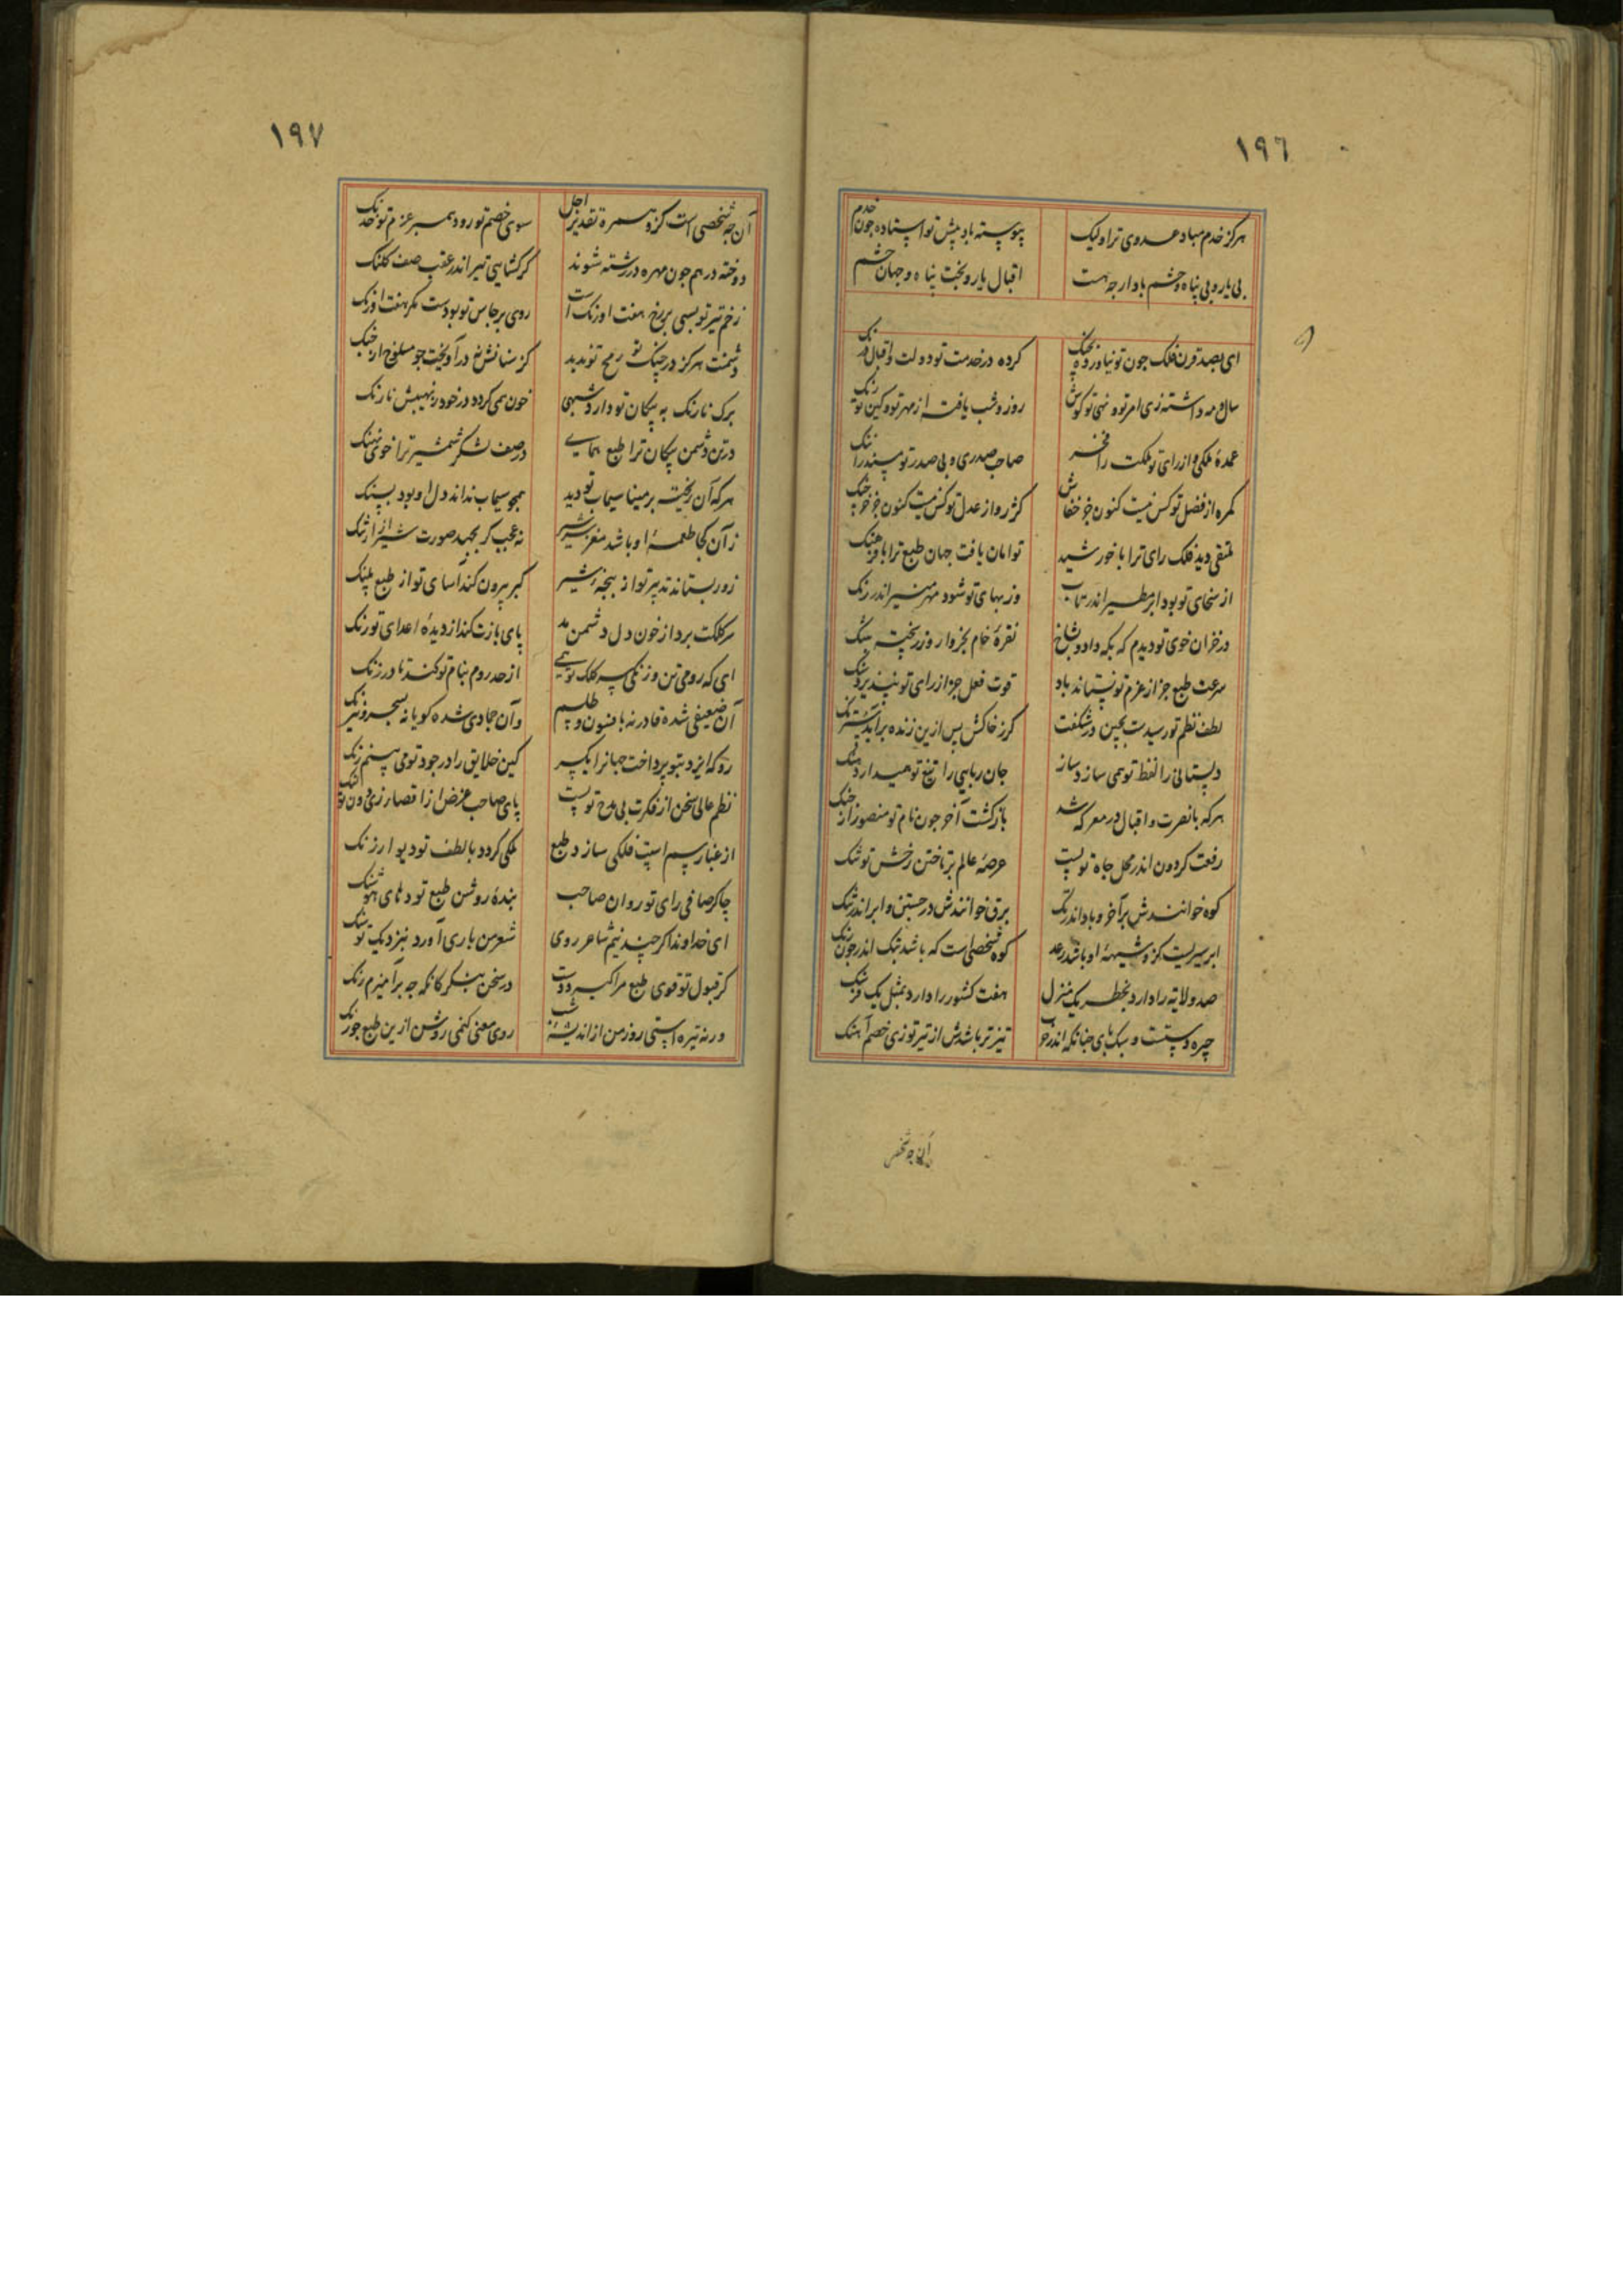 ١٩٦
هرکز خدم مباد عدوی ترا ولیک پیوسته باد پیش تو استاده چون خدم
بی یار و بی پناه و حشم باد ار چه هست اقبال یار و بخت پناه و جهان حشم
ای بصد قرن فلک چون تو نیاورده بچنک کرده در خدمت تو دولت و اقبال
سال و مه داشته زی امر تو و نهی تو کوش روز و شب یافته از مهر تو و کین تو رنک
عمدهٔ ملکی و از رای تو ملکت را فخر صاحب صدری و بی صدر تو مسند را ننک
کمره از فضل تو کس نیست کنون جز خفاش کژ رو از عدل تو کس نیست کنون جز خرچنک
متقی دید فلک رای ترا با خورشید توامان یافت جهان طبع ترا با فرهنک
از سخای تو بود ابر مطیر اندر تاب وز بهای تو شود مهر منیر اندر زنک
در خزان خوی تو دیدم که بکه داد و بشاخ نقرهٔ خام بخروار و زر پخته بتنک
سرعت طبع جز از عزم تو نستاند باد قوت فعل جز از رای تو نپذیرد سنک
لطف نظم تو رسیدست بچین در شکفت کرز خاکش پس ازین زنده برآید سترنک
دلستانی را لفظ تو همی سازد ساز جان ربایی را تیغ تو همیدارد
هرکه با نصرت و اقبال در معرکه شد بازکشت آخر چون نام تو منصور از جنک
رفعت کردون اندر محل جاه تو پست عرصهٔ عالم بر تاختن رخش تو تنک
کوه خوانندش بر آخر و باد اندر تک برق خوانندش در جستن و ابر اندر تنک
ابر سیریست کزو شیههٔ او باشد رعد کوه شخصی است که باشد بتک اندر چون رنک
صد ولایت را دارد بخطر یک منزل هفت کشور را دارد بمثل یک فرسنک
چیره دستست و سبک پای چنانکه اندر تیزتر باشدش از تیر تو زی خصم آهنک
آن چه شخص
١٩٧
آن چه شخصی است کزو سمرهٔ تقدیر اجل سوی خصم تو رود همبر عزم تو خدنک
دوخته در هم چون مهره در رشته شوند کر کشایی تیر اندر عقب صف کلنک
زخم تیر تو بسی بر رخ هفت اورنک است روی برجاس تو بودست مکر هفت اورنک
دشمنت هرکز در چنک تو رمح تو ندید کز سنانش نه درآویخت چو مسلوخ از
برک نارنک به پیکان تو دارد شبهی خون همی کردد در خود ز نهیبش نارنک
در تن دشمن پیکان ترا طبع همای در صف لشکر شمشیر ترا خوی نهنک
هرکه آن ریخته بر مینا سیماب تو دید همچو سیماب نداند دل او بود بسنک
زآن کجا طعمهٔ او باشد مغز سر شیر نه عجب کر بجهد صورت شیر از ارتنک
زور بستاند تدبیر تو از پنجهٔ شیر کبر بیرون کند آسای تو از طبع پلنک
سر کلکت بردار خون دل دشمن مد پای بازت کند از دیدهٔ اعدای تو رنک
ای که رومی تن و زنکی سر کلک تو همی از حد روم بنام تو کند تا در زنک
آن ضعیفی شده قادر نه بافسون و طلسم وآن جمادی شده کویا نه بسحر و نیرنک
رو که ایزد بتو پرداخت جهانرا یکسر کین خلایق را در جود تو می بینم رنک
نظم عالی سخن از فکرت بی مدح تو پست پای صاحب غرض از اقصا رزی دون تو لنک
از غبار سم اسب فلکی سازد طبع ملکی کردد با لطف تو دیوار زنک
چاکر صافی رای تو روان صاحب بندهٔ روشن طبع تو دهای هوشنک
ای خداوند اکر چند نیم شاعر روی شعر من باری آورد بنزدیک تو
کر قبول تو قوی طبع مرا کیرد دست در سخن بنکر کانکه چه برآمیزم رنک
ور نه تیره استی روز من از اندیشهٔ شب روی معنی کنمی روشن ازین طبع چو زنک